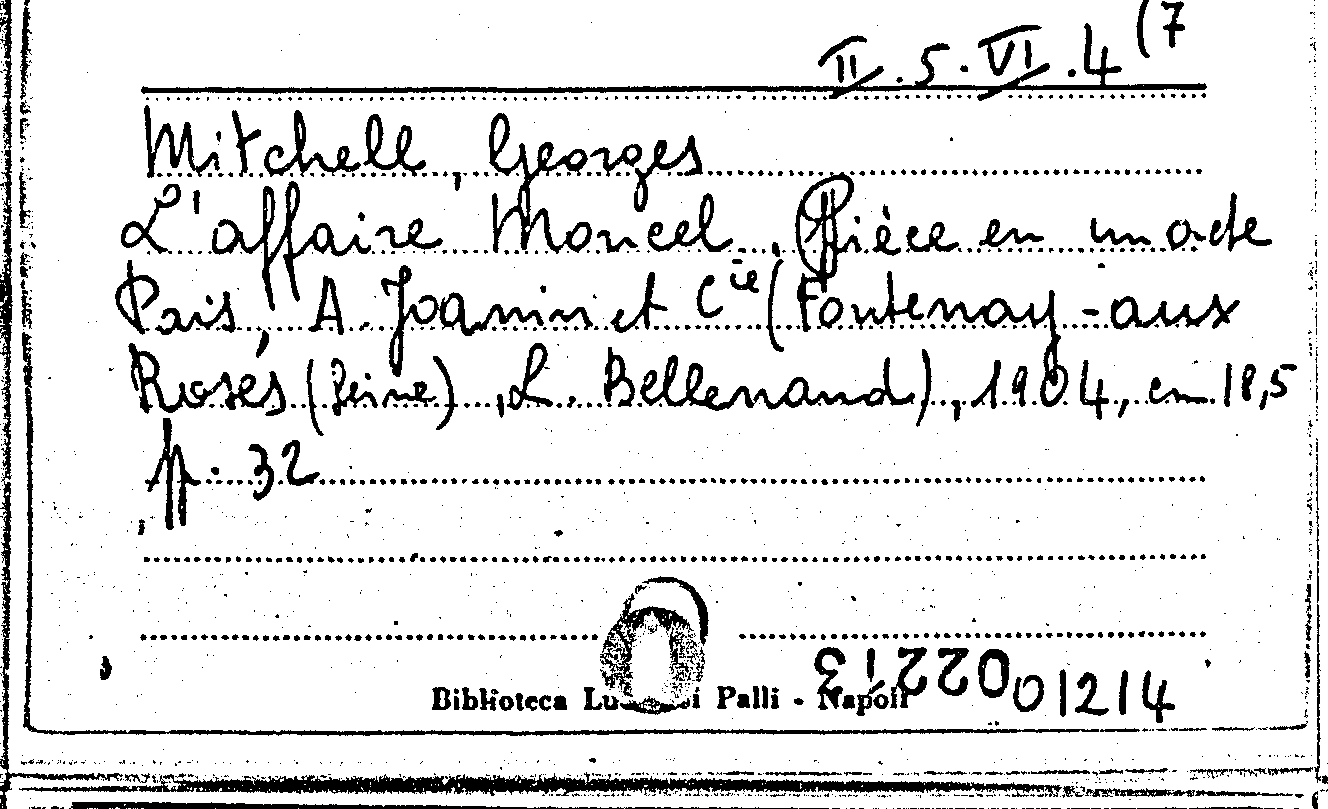 II.5.VI.4 (7
Mitchell, Georges
L'affaire Moncel. Pièce en un acte
Paris, A. Joanin et Cie (Fontenay-aux
Roses (Seine), L. Bellenand), 1904, cm 18,5
, pp. 32
022213 01214
Biblioteca Lu Palli - Napoli